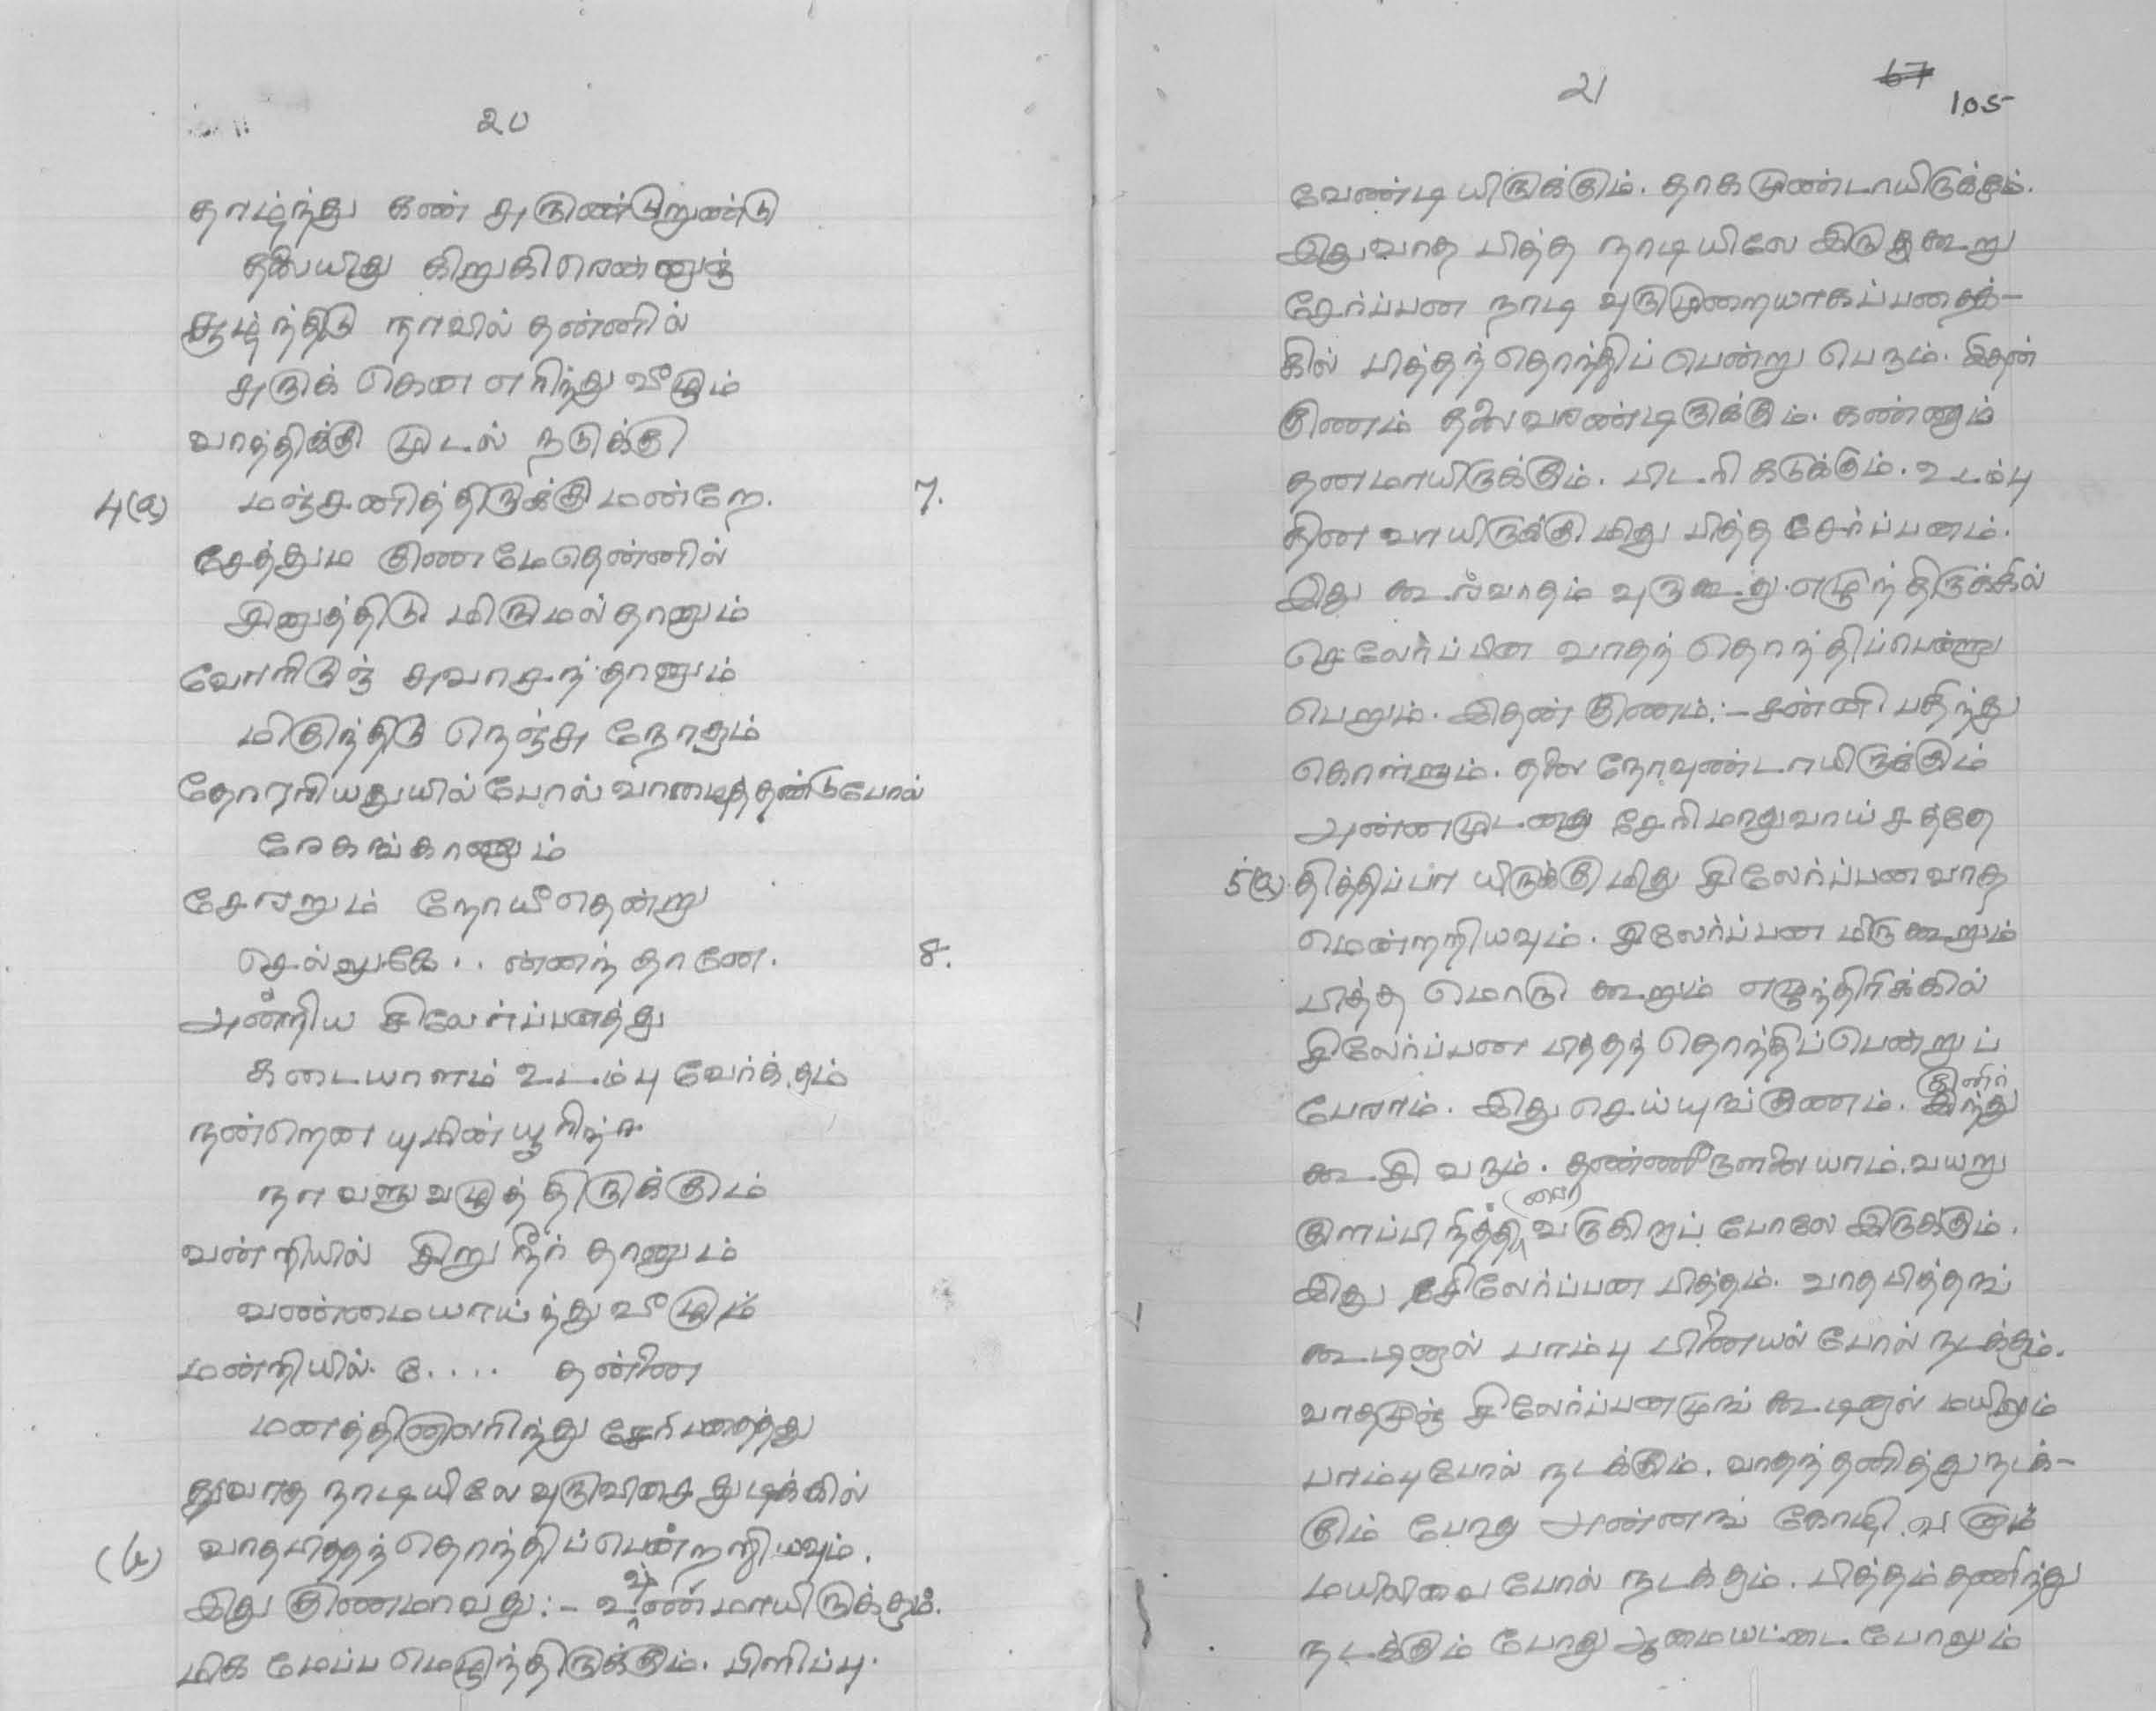 20
தாழ்ந்து கண் சுருண்டுறுண்டு
தலையிது கிறுகிரென்னுஞ்
சூழ்ந்திடு நாவில் தண்ணில்
சுருக் கென எரிந்து வீழும்
வாந்திக்கு முடல் நடுக்கு
4(a) மஞ்சணித்திருக்கு மண்றே. 7.
சேத்தும குண மேதெண்ணில்
இளுத்திடு மிருமல் தானும்
வோரிடுஞ் சுவாசந் தானும்
மிகுந்திடு நெஞ்சு நோகும்
தோரரியதுயில் போல் வாழைத்தண்டுபோல்
ரேகங்காணும்
சேரறும் நோயீதென்று
செல்லுகே . . ன்னந் தானே. 8.
அன்றிய சிலேர்ப்பனத்து
கடையாளம் உடம்பு வேர்க்கும்
நன்றென யுமின்யூரிந்
நா வளுவழுத்திருக்கும்
வன்றியில் சிறு நீர் தானும்
வண்மையாய்ந்து வீழும்
மன்றியில் கு . . . . தண்ணி
மனத்தினாலறிந்து சேர்
துவாத நாடியிலே வுருவிசை துடிக்கில்
(b) வாதபித்தந் தொந்திப்பென்றறியவும்.
இது குணமாவது :- உஷ்ணமாயிருக்கும்.
மிக மேப்ப மெழுந்திருக்கும். பிளிப்பு
21
67
105
வேண்டியிருக்கும். தாகமுண்டாயிருக்கும்.
இதுவாத பித்த நாடியிலே இரு கூறு
சேர்ப்பன நாடி வுருமுறையாகப்பதைக்-
கில் பித்தந் தொந்திப் பென்று பெரும். இதன்
குணம் தலை வரண்டிருக்கும். கண்ணும்
தனமாயிருக்கும். பிடரி கடுக்கும். உடம்பு
தினவாயிருக்கு மிது பித்த சேர்ப்பனம்.
இது கூர்வாதம் வுருகூறு எழுந்திருக்கில்
செலேர்ப்பின வாதந் தொந்திப்பென்று
பெறும். இதன் குணம் :- சன்னி பதிந்து
கொள்ளும். தலை நோவுண்டாயிருக்கும்
அன்னமுடனது சேரிமாறுவாய் சத்தே
5(a) தித்திப்பா யிருக்கு மிது சிலேர்ப்பனவாத
மென்றறியவும். சிலேர்ப்பன மிரு கூறும்
பித்த மொரு கூறும் எழுந்திரிக்கில்
சிலேர்ப்பன பித்தந் தொந்திப்பென்றுப்
பேராம். இது செய்யுங்குணம். குளிர்ந்து
கூசி வரும். தண்ணீருளளையாம். வயறு
குளப்பி நித்திரை வருகிறப் போலே இருக்கும்.
இது சிலேர்ப்பன பித்தம். வாத பித்தங்
கூடினால் பாம்பு பிணியல் போல் நடக்கும்.
வாதமுஞ் சிலேர்ப்பனமுங் கூடினால் மயிலும்
பாம்புபோல் நடக்கும். வாதந்தணித்து நடக்-
கும் போது அன்னங் கோழி
மயிலிவை போல் நடக்கும். பித்தம் தணிந்து
நடக்கும் போது ஆமையட்டை போலும்